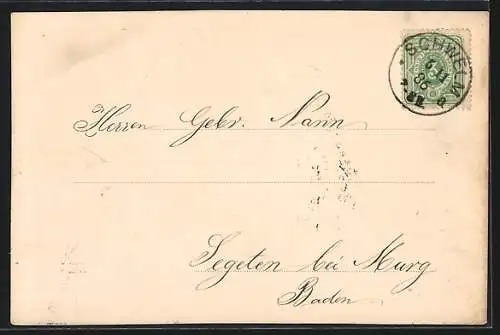 SCHWELM
6 11
86
Herren Gebr. Nann
Segeten bei Murg
Baden